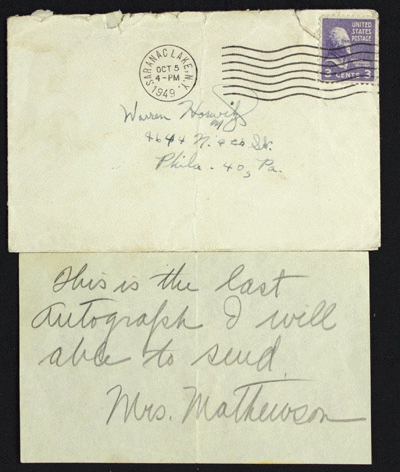 SARANAC LAKE, N.Y.
OCT 5
4-PM
1949
UNITED STATES
POSTAGE
3 CENTS 3
Warren
4644 N. St.
Phila - 40, Pa.
This is the last
autograph I will
able to send.
Mrs. Mathewson